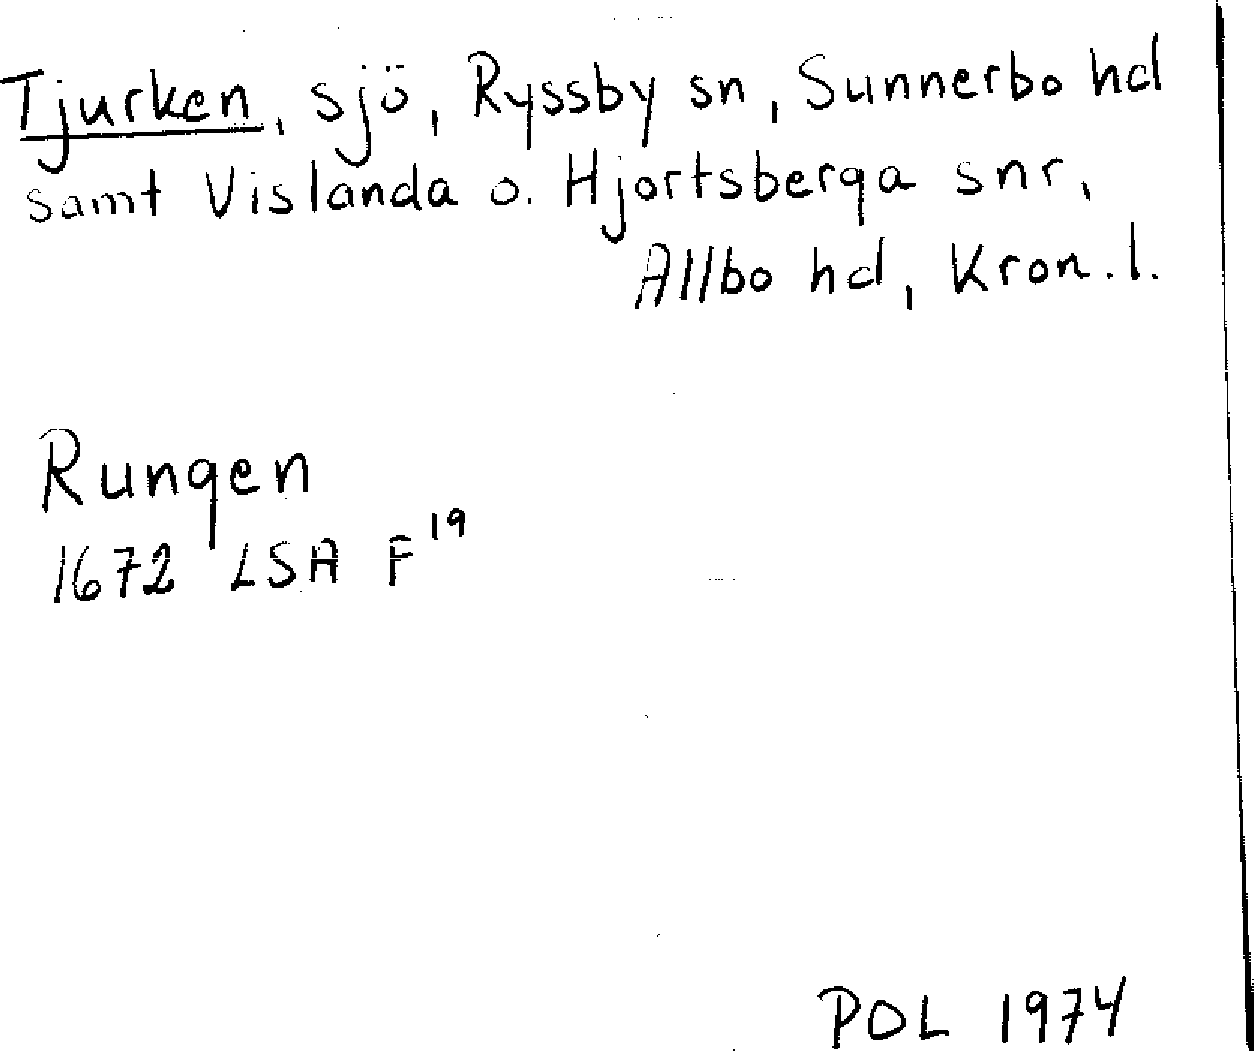 Tjurken, sjö, Ryssby sn, Sunnerbo hd
samt Vislanda o. Hjortsberga snr,
Allbo hd, Kron.l.
Rungen
1672 LSA F19
POL 1974